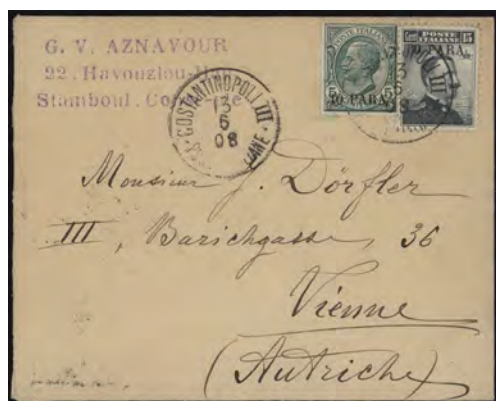 G. V. AZNAVOUR
22. Havouzlou-H
Stamboul. Co
COSTANTINOPOLI III
13
6
08
POSTE ITALIANE
5 10 PARA 5
Cent POSTE ITALIANE 15
PARA
III
13
6
08
Monsieur J. Dörfler
III, Barichgasse, 36
Vienne
(Autriche)